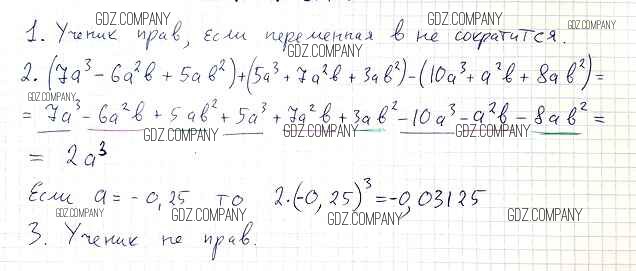 GDZ.COMPANY GDZ.COMPANY GDZ.COMPANY
1. Ученик прав, если переменная в не сократится.
GDZ.COMPANY GDZ.COMPANY
2. (7a³ - 6a²в + 5aв²)+(5a³ + 7a²в + 3aв²)-(10a³ + a²в + 8aв²) =
GDZ.COMPANY
= 7a³ - 6a²в + 5aв² + 5a³ + 7a²в + 3aв² - 10a³ - a²в - 8aв² =
GDZ.COMPANY GDZ.COMPANY GDZ.COMPANY
= 2a³
Если a = - 0,25 то 2·(-0,25)³ = -0,03125
GDZ.COMPANY GDZ.COMPANY GDZ.COMPANY GDZ.COMPANY
3. Ученик не прав.